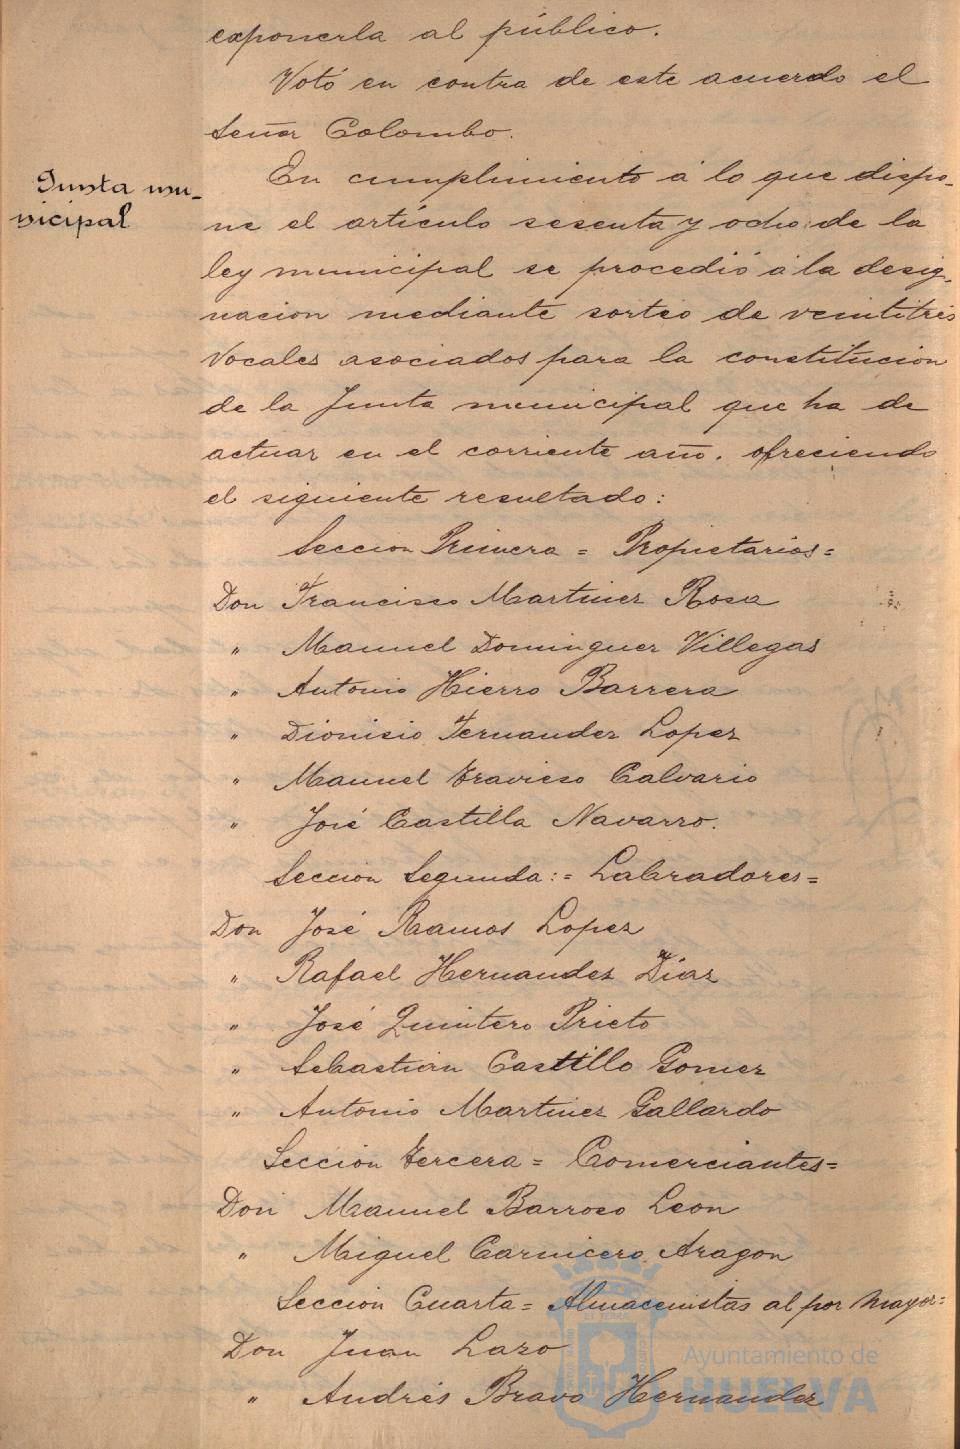 exponerla al público.
Votó en contra de este acuerdo el
Señor Colombo.
Junta mu-
nicipal
En cumplimiento á lo que dispo-
ne el artículo sesenta y ocho de la
ley municipal se procedió á la desig-
nacion mediante sorteo de veintitrés
Vocales asociados para la constitución
de la Junta municipal que ha de
actuar en el corriente año. ofreciendo
el siguiente resultado:
Seccion Primera = Propietarios =
Don Francisco Martinez Rosa
" Manuel Dominguez Villegas
" Antonio Hierro Barrera
" Dionisio Fernandez Lopez
" Manuel Travieso Calvario
" José Castilla Navarro.
Seccion Segunda: = Labradores =
Don José Ramos Lopez
" Rafael Hernandez Díaz
" José Quintero Prieto
" Sebastian Castillo Gomez
" Antonio Martinez Gallardo
Seccion tercera = Comerciantes =
Don Manuel Barroso Leon
" Miguel Carnicero Aragon
Seccion Cuarta = Almacenistas al por mayor =
Don Juan Lazo
" Andrés Bravo Hernandez
Ayuntamiento de
HUELVA